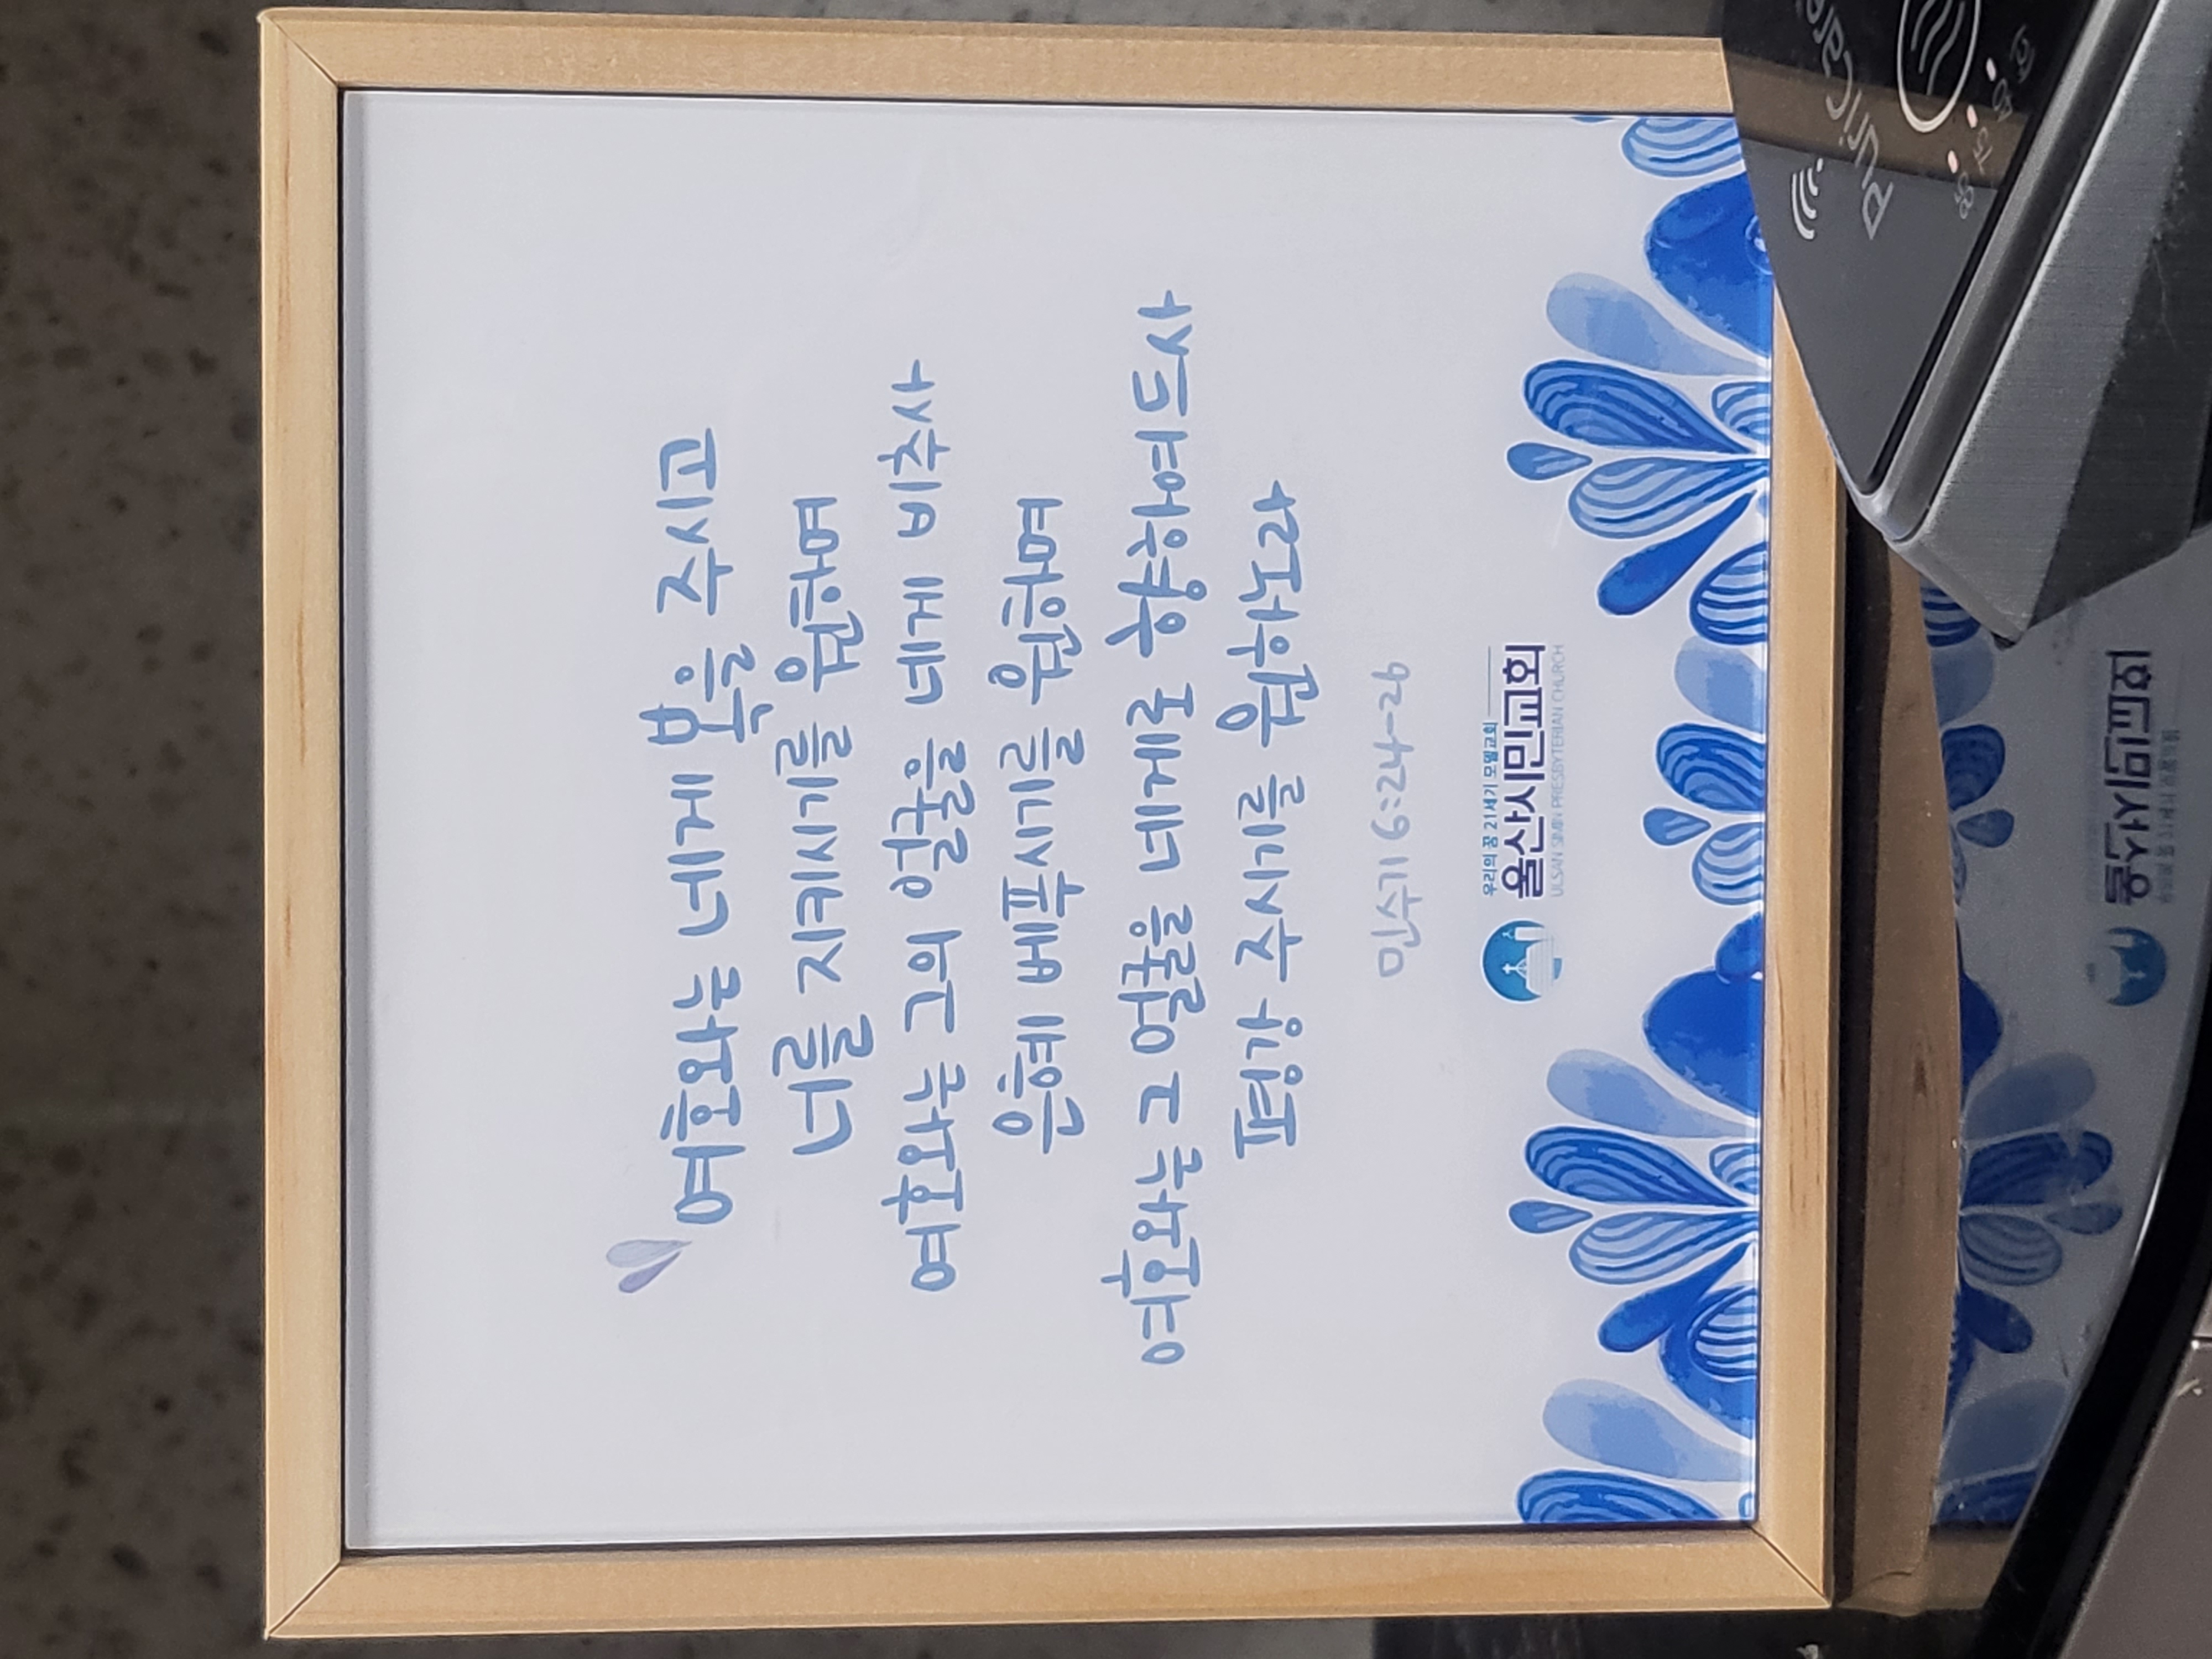 여호와는 네게 복을 주시고
너를 지키시기를 원하며
여호와는 그의 얼굴을 네게 비추사
은혜 베푸시기를 원하며
여호와는 그 얼굴을 네게로 향하여 드사
평강 주시기를 원하노라
민수기 6:24-26
우리의 꿈 21세기 모델교회
울산시민교회
ULSAN SIMIN PRESBYTERIAN CHURCH